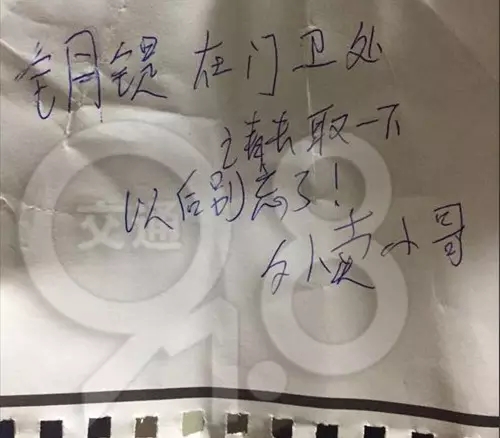 钥匙在门卫处
请去取一下
以后别忘了!
外卖小哥
交通
91.8